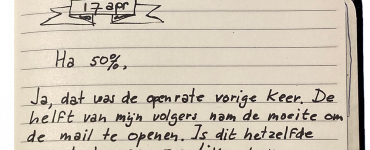 17 apr
Ha 50%,
Ja, dat was de openrate vorige keer. De
helft van mijn volgers nam de moeite om
de mail te openen. Is dit hetzelfde